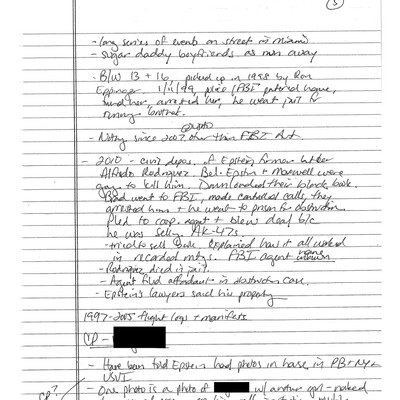 5
- long series of events on street in Miami
- sugar daddy boyfriends as run away
- B/W 13 + 16, picked up in 1998 by Ron
Eppinger. 1/11/99, police/FBI entered house,
her, arrested her, he went jail for
running
- Nothing since 2007 other than FBI
- 2010 - civil depos. of Epstein former butler
Alfredo Rodriguez. Bel. Epstein + Maxwell were
going to kill him. Downloaded their black book.
Brad went to FBI, made controlled calls, they
arrested him + he went to prison for obstruction.
Pled to coop. agmt + blew deal b/c
he was selling AK-47s.
- tried to sell book. Explained how it all worked
in recorded mtgs. FBI agent
- Rodriguez died in jail.
- Agent filed affidavit in obstruction case.
- Epstein's lawyers said his property
1997-2005 flight logs + manifests
CP -
- Have been told Epstein had photos in house in PB + NY +
USVI
CP?
- One photo is a photo of w/ another girl - naked